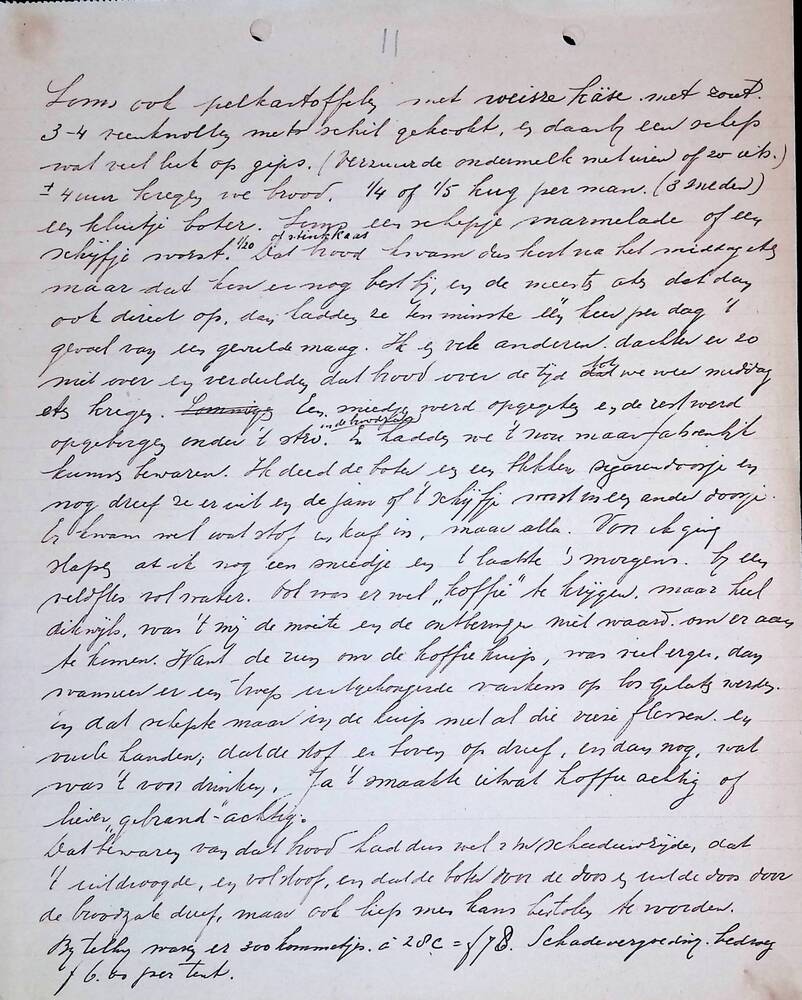 11
Soms ook pelkartoffeln met weisse käse met zout.
3-4 veenknollen met schil gekookt, en daarbij een schep
wat veel leek op gips. (Verzuurde ondermelk met uien of zo iets.)
± 4 uur kregen we brood. 1/4 of 1/5 kug per man. (3 sneden)
een kluitje boter. Soms een schepje marmelade of een
schijfje worst. 1/20 of stinkkaas Dat brood kwam dus kort na het middageten
maar dat kon er nog best bij, en de meesten aten dat dan
ook direct op, dan hadden ze ten minste één keer per dag 't
gevoel van een gevulde maag. Ik en vele anderen dachten er zo
niet over en verdeelden dat brood over de tijd dat tot we weer middag
eten kregen. Sommige Een sneedje werd opgegeten en de rest werd
opgeborgen onder 't stro. in de broodzak En hadden we 't nou maar fatsoenlijk
kunnen bewaren. Ik deed de boter in een blikken sigarendoosje en
nog dreef ze er uit en de jam of 't schijfje worst in een ander doosje.
Er kwam wel wat stof en kaf in, maar alla. Voor ik ging
slapen at ik nog een sneedje en 't laatste 's morgens. Bij een
veldfles vol water. Ook was er wel "koffie" te krijgen, maar heel
dikwijls, was 't mij de moeite en de ontberingen niet waard om er aan
te komen. Want de run om de koffiekuip, was veel erger, dan
wanneer er een troep uitgehongerde varkens op los gelaten werden.
En dat schepte maar in de kuip met al die vieze flessen en
vuile handen, dat de stof er boven op dreef, en dan nog, wat
was 't voor drinken. Ja 't smaakte ietwat koffie achtig of
liever "gebrand-"achtig.
Dat bewaren van dat brood had dus wel z'n schaduwzijde, dat
't uitdroogde, en vol stoof, en dat de boter door de doos en uit de doos door
de broodzak dreef, maar ook liep men kans bestolen te worden.
Bij telling waren er 300 kommetjes. à 28c = f 78. Schadevergoeding bedroeg
f 6.00 per tent.